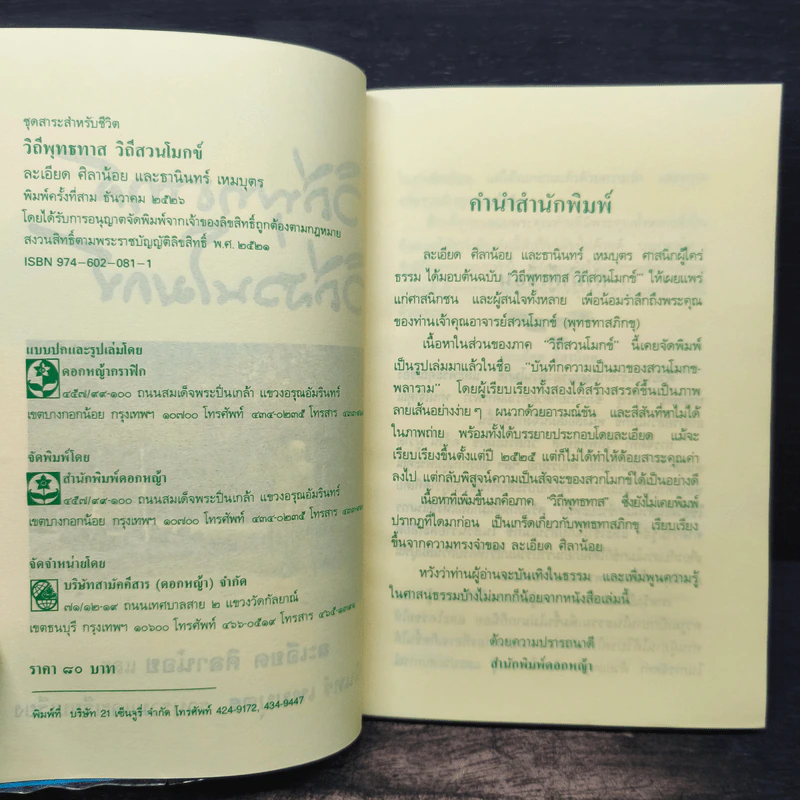 ชุดสาระสำหรับชีวิต
วิถีพุทธทาส วิถีสวนโมกข์
ละเอียด ศิลาน้อย และธานินทร์ เหมบุตร
พิมพ์ครั้งที่สาม ธันวาคม ๒๕๓๖
โดยได้รับการอนุญาตจัดพิมพ์จากเจ้าของลิขสิทธิ์ถูกต้องตามกฎหมาย
สงวนสิทธิ์ตามพระราชบัญญัติลิขสิทธิ์ พ.ศ. ๒๕๒๑
ISBN 974-602-081-1
แบบปกและรูปเล่มโดย
ดอกหญ้ากราฟิก
๔๕๗/๙๙-๑๐๐ ถนนสมเด็จพระปิ่นเกล้า แขวงอรุณอัมรินทร์
เขตบางกอกน้อย กรุงเทพฯ ๑๐๗๐๐ โทรศัพท์ ๔๓๔-๐๒๓๕ โทรสาร
จัดพิมพ์โดย
สำนักพิมพ์ดอกหญ้า
๔๕๗/๙๙-๑๐๐ ถนนสมเด็จพระปิ่นเกล้า แขวงอรุณอัมรินทร์
เขตบางกอกน้อย กรุงเทพฯ ๑๐๗๐๐ โทรศัพท์ ๔๓๔-๐๒๓๕ โทรสาร
จัดจำหน่ายโดย
บริษัทสามัคคีสาร (ดอกหญ้า) จำกัด
๗๑/๑๒-๑๙ ถนนเทศบาลสาย ๒ แขวงวัดกัลยาณ์
เขตธนบุรี กรุงเทพฯ ๑๐๖๐๐ โทรศัพท์ ๔๖๖-๐๕๑๙ โทรสาร
ราคา ๘๐ บาท
พิมพ์ที่ บริษัท 21 เซ็นจูรี่ จำกัด โทรศัพท์ 424-9172, 434-9447
คำนำสำนักพิมพ์
ละเอียด ศิลาน้อย และธานินทร์ เหมบุตร ศาสนิกผู้ใคร่
ธรรม ได้มอบต้นฉบับ "วิถีพุทธทาส วิถีสวนโมกข์" ให้เผยแพร่
แก่ศาสนิกชน และผู้สนใจทั้งหลาย เพื่อน้อมรำลึกถึงพระคุณ
ของท่านเจ้าคุณอาจารย์สวนโมกข์ (พุทธทาสภิกขุ)
เนื้อหาในส่วนของภาค "วิถีสวนโมกข์" นี้เคยจัดพิมพ์
เป็นรูปเล่มมาแล้วในชื่อ "บันทึกความเป็นมาของสวนโมกข-
พลาราม" โดยผู้เรียบเรียงทั้งสองได้สร้างสรรค์ขึ้นเป็นภาพ
ลายเส้นอย่างง่ายๆ ผนวกด้วยอารมณ์ขัน และสีสันที่หาไม่ได้
ในภาพถ่าย พร้อมทั้งได้บรรยายประกอบโดยละเอียด แม้จะ
เรียบเรียงขึ้นตั้งแต่ปี ๒๕๒๕ แต่ก็ไม่ได้ทำให้ด้อยสาระคุณค่า
ลงไป แต่กลับพิสูจน์ความเป็นสัจจะของสวกโมกข์ได้เป็นอย่างดี
เนื้อหาที่เพิ่มขึ้นมาคือภาค "วิถีพุทธทาส" ซึ่งยังไม่เคยพิมพ์
ปรากฏที่ใดมาก่อน เป็นเกร็ดเกี่ยวกับพุทธทาสภิกขุ เรียบเรียง
ขึ้นจากความทรงจำของ ละเอียด ศิลาน้อย
หวังว่าท่านผู้อ่านจะบันเทิงในธรรม และเพิ่มพูนความรู้
ในศาสนธรรมบ้างไม่มากก็น้อยจากหนังสือเล่มนี้
ด้วยความปรารถนาดี
สำนักพิมพ์ดอกหญ้า